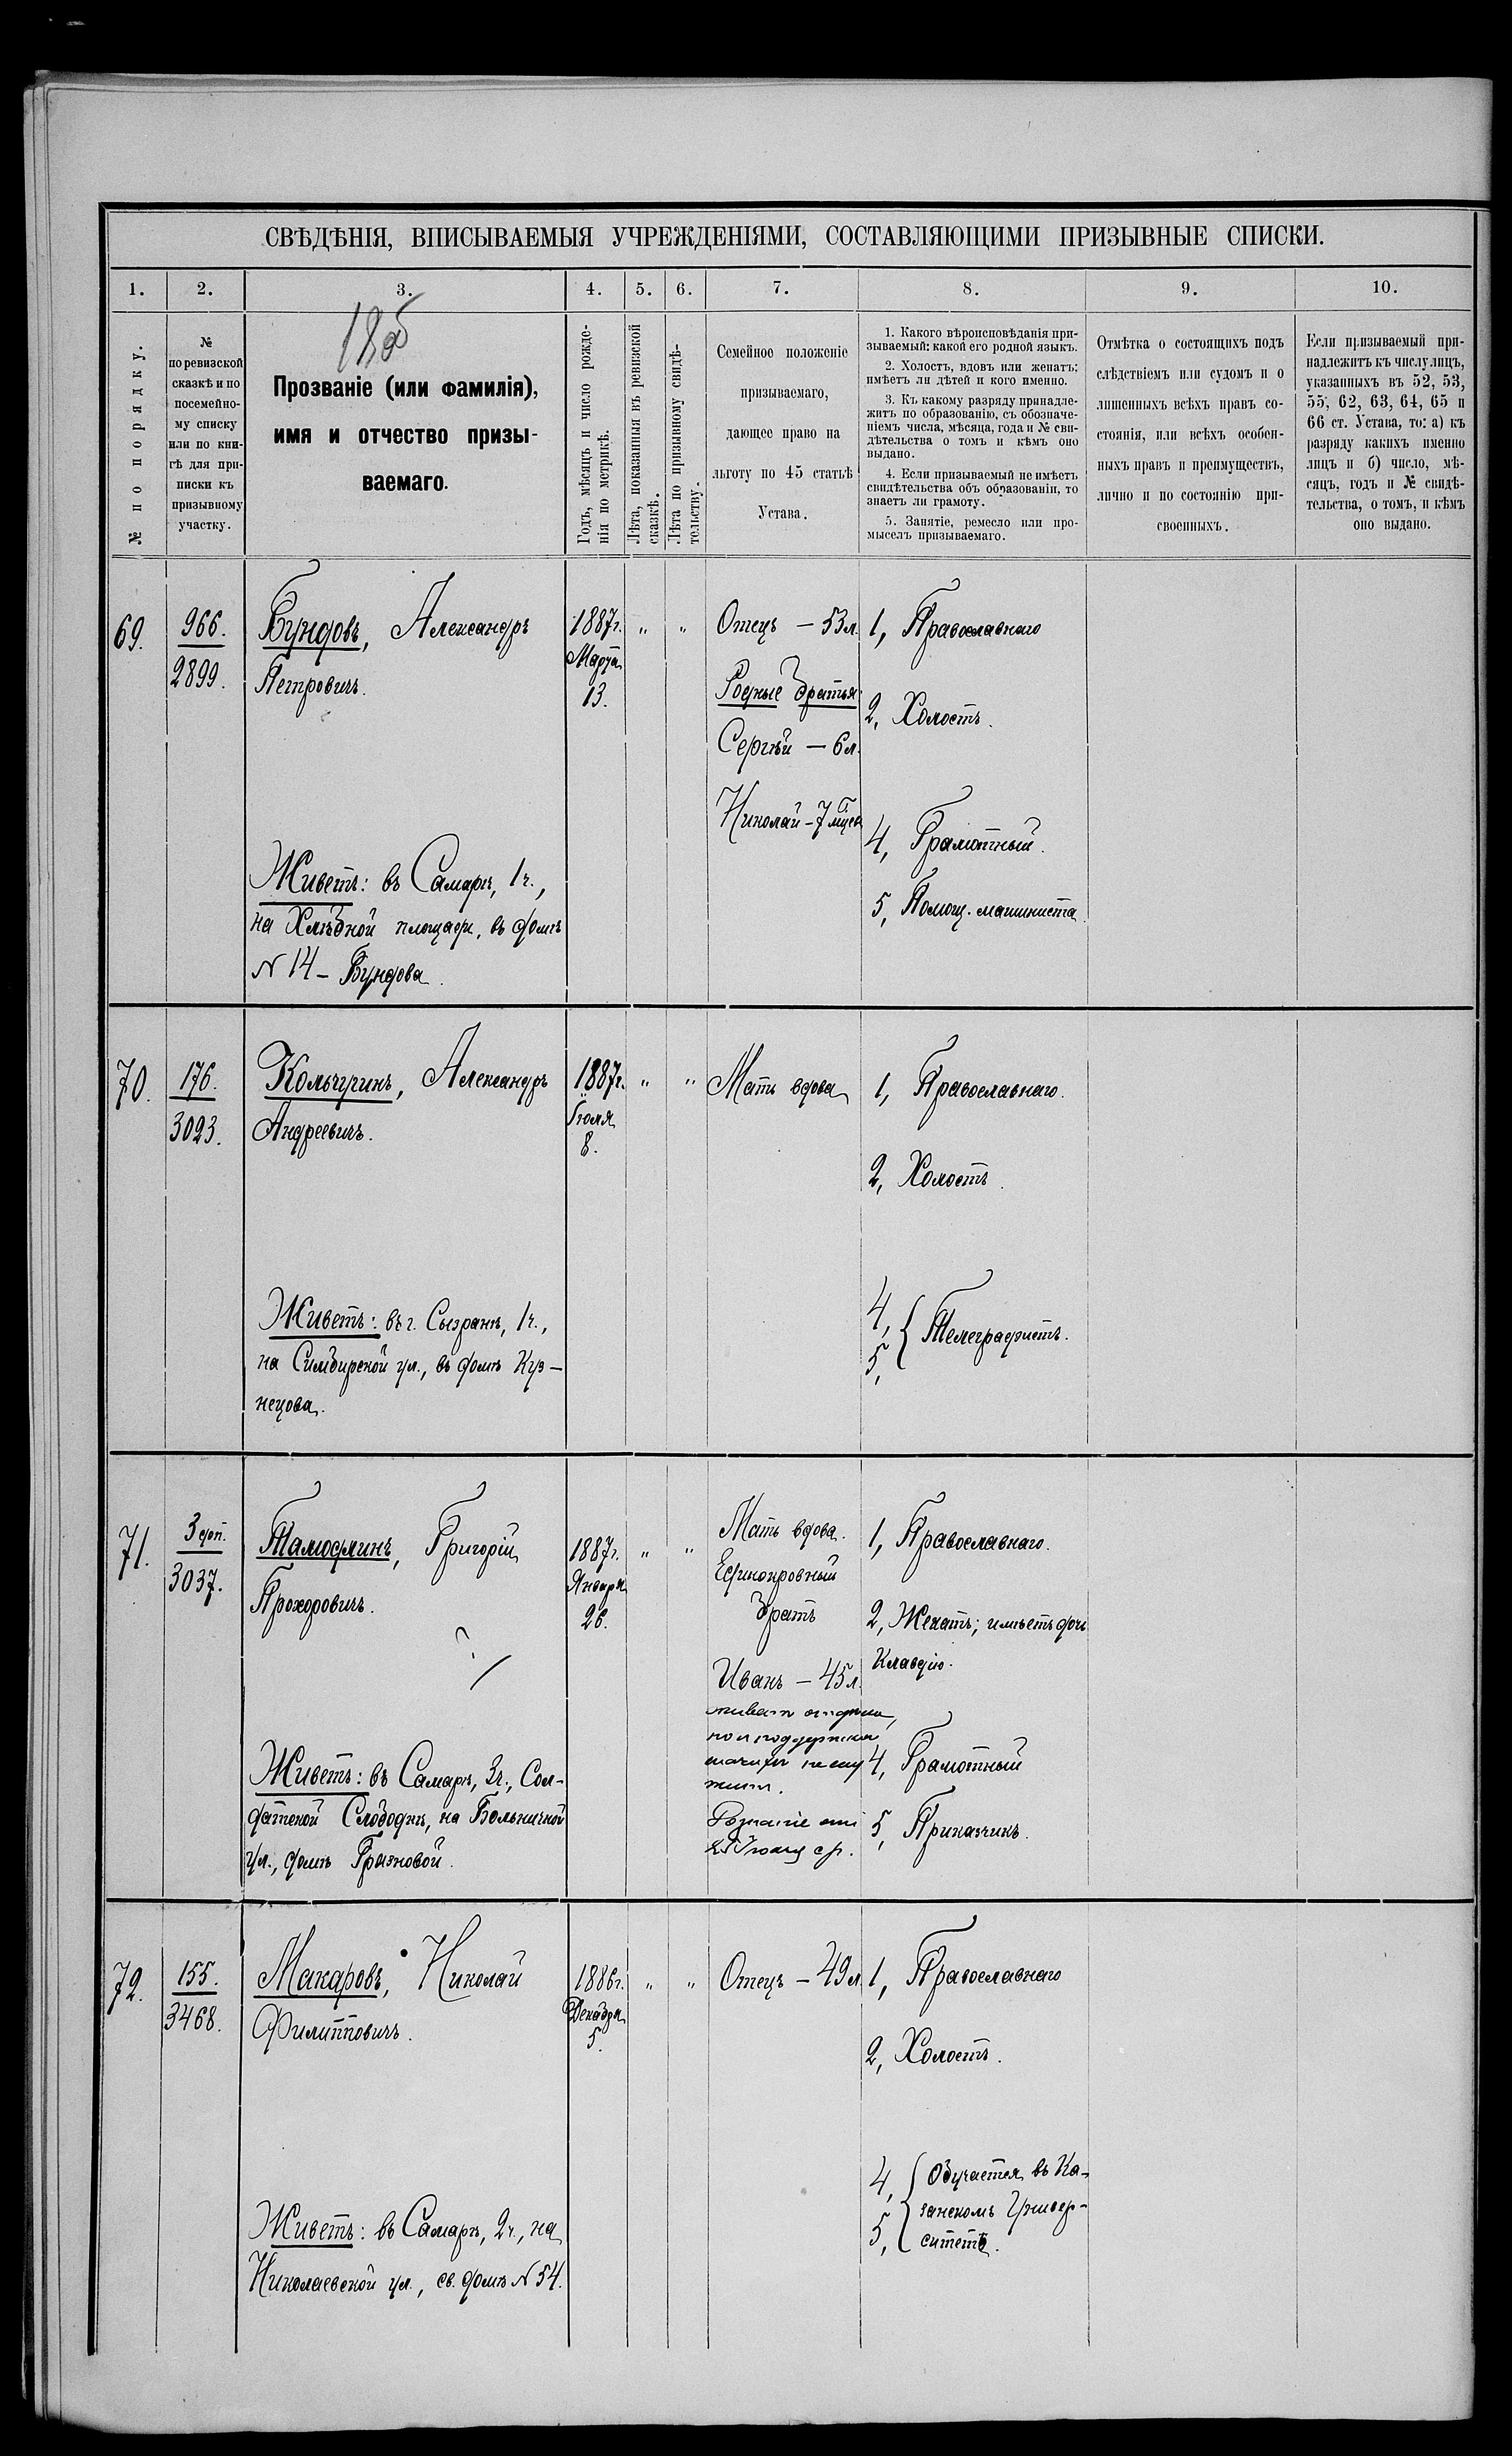 СВѢДѢНІЯ, ВПИСЫВАЕМЫЯ УЧРЕЖДЕНІЯМИ, СОСТАВЛЯЮЩИМИ ПРИЗЫВНЫЕ СПИСКИ.
1. 2. 3. 4. 5. 6. 7. 8. 9. 10.
№ по порядку.
№
по ревизской
сказкѣ и по
посемейно-
му списку
или по кни-
гѣ для при-
писки къ
призывному
участку.
Прозваніе (или фамилія),
имя и отчество призы-
ваемаго.
Годъ, мѣсяцъ и число рожде-
нія по метрикѣ.
Лѣта, показанныя въ ревизской
сказкѣ.
Лѣта по призывному свидѣ-
тельству.
Семейное положеніе
призываемаго,
дающее право на
льготу по 45 статьѣ
Устава.
1. Какого вѣроисповѣданія при-
зываемый: какой его родной языкъ.
2. Холостъ, вдовъ или женатъ;
имѣетъ ли дѣтей и кого именно.
3. Къ какому разряду принадле-
житъ по образованію, съ обозначе-
ніемъ числа, мѣсяца, года и № сви-
дѣтельства о томъ и кѣмъ оно
выдано.
4. Если призываемый не имѣетъ
свидѣтельства объ образованіи, то
знаетъ ли грамоту.
5. Занятіе, ремесло или про-
мыселъ призываемаго.
Отмѣтка о состоящихъ подъ
слѣдствіемъ или судомъ и о
лишенныхъ всѣхъ правъ со-
стоянія, или всѣхъ особен-
ныхъ правъ и преимуществъ,
лично и по состоянію при-
своенныхъ.
Если призываемый при-
надлежитъ къ числу лицъ,
указанныхъ въ 52, 53,
55, 62, 63, 64, 65 и
66 ст. Устава, то: а) къ
разряду какихъ именно
лицъ и б) число, мѣ-
сяцъ, годъ и № свидѣ-
тельства, о томъ, и кѣмъ
оно выдано.
69.
966.
2899.
Бундовъ, Александръ
Петровичъ.
Живетъ: въ Самарѣ, 1 ч.,
на Хлѣбной площади, въ домѣ
N 14 – Бундова.
1887 г.
Марта
13.
" "
Отецъ – 53 л.
Родные братья:
Сергѣй – 6 л.
Николай – 7 мѣсев
1, Православнаго
2, Холостъ.
4, Грамотный.
5, Помощ. машиниста.
70.
176.
3023.
Кольчугинъ, Александръ
Андреевичъ.
Живетъ: въ г. Сызрани, 1 ч.,
на Симбирской ул., въ домѣ Куз-
нецова.
1887 г.
Іюля
8.
" "
Мать вдова
1, Православнаго.
2, Холостъ.
4,
5, Телеграфистъ.
71.
3 доп.
3037.
Тамодлинъ, Григорій
Прохоровичъ.
Живетъ: въ Самарѣ, 3 ч., Сол-
датской Слободкѣ, на Больничной
ул., домѣ Грязновой.
1887 г.
Января
26.
" "
Мать вдова.
Единокровный
братъ
Иванъ – 45 л.
1, Православнаго.
2, Женатъ; имѣетъ дочь
Клавдію.
4, Грамотный
5, Приказчикъ.
72.
155.
3468.
Макаровъ, Николай
Филипповичъ.
Живетъ: въ Самарѣ, 2 ч., на
Николаевской ул., св. домѣ N 54.
1886 г.
Декабря
5.
" "
Отецъ – 49 л.
1, Православнаго
2, Холостъ.
4, Обучается въ Ка-
занскомъ Универ-
5, ситетѣ.